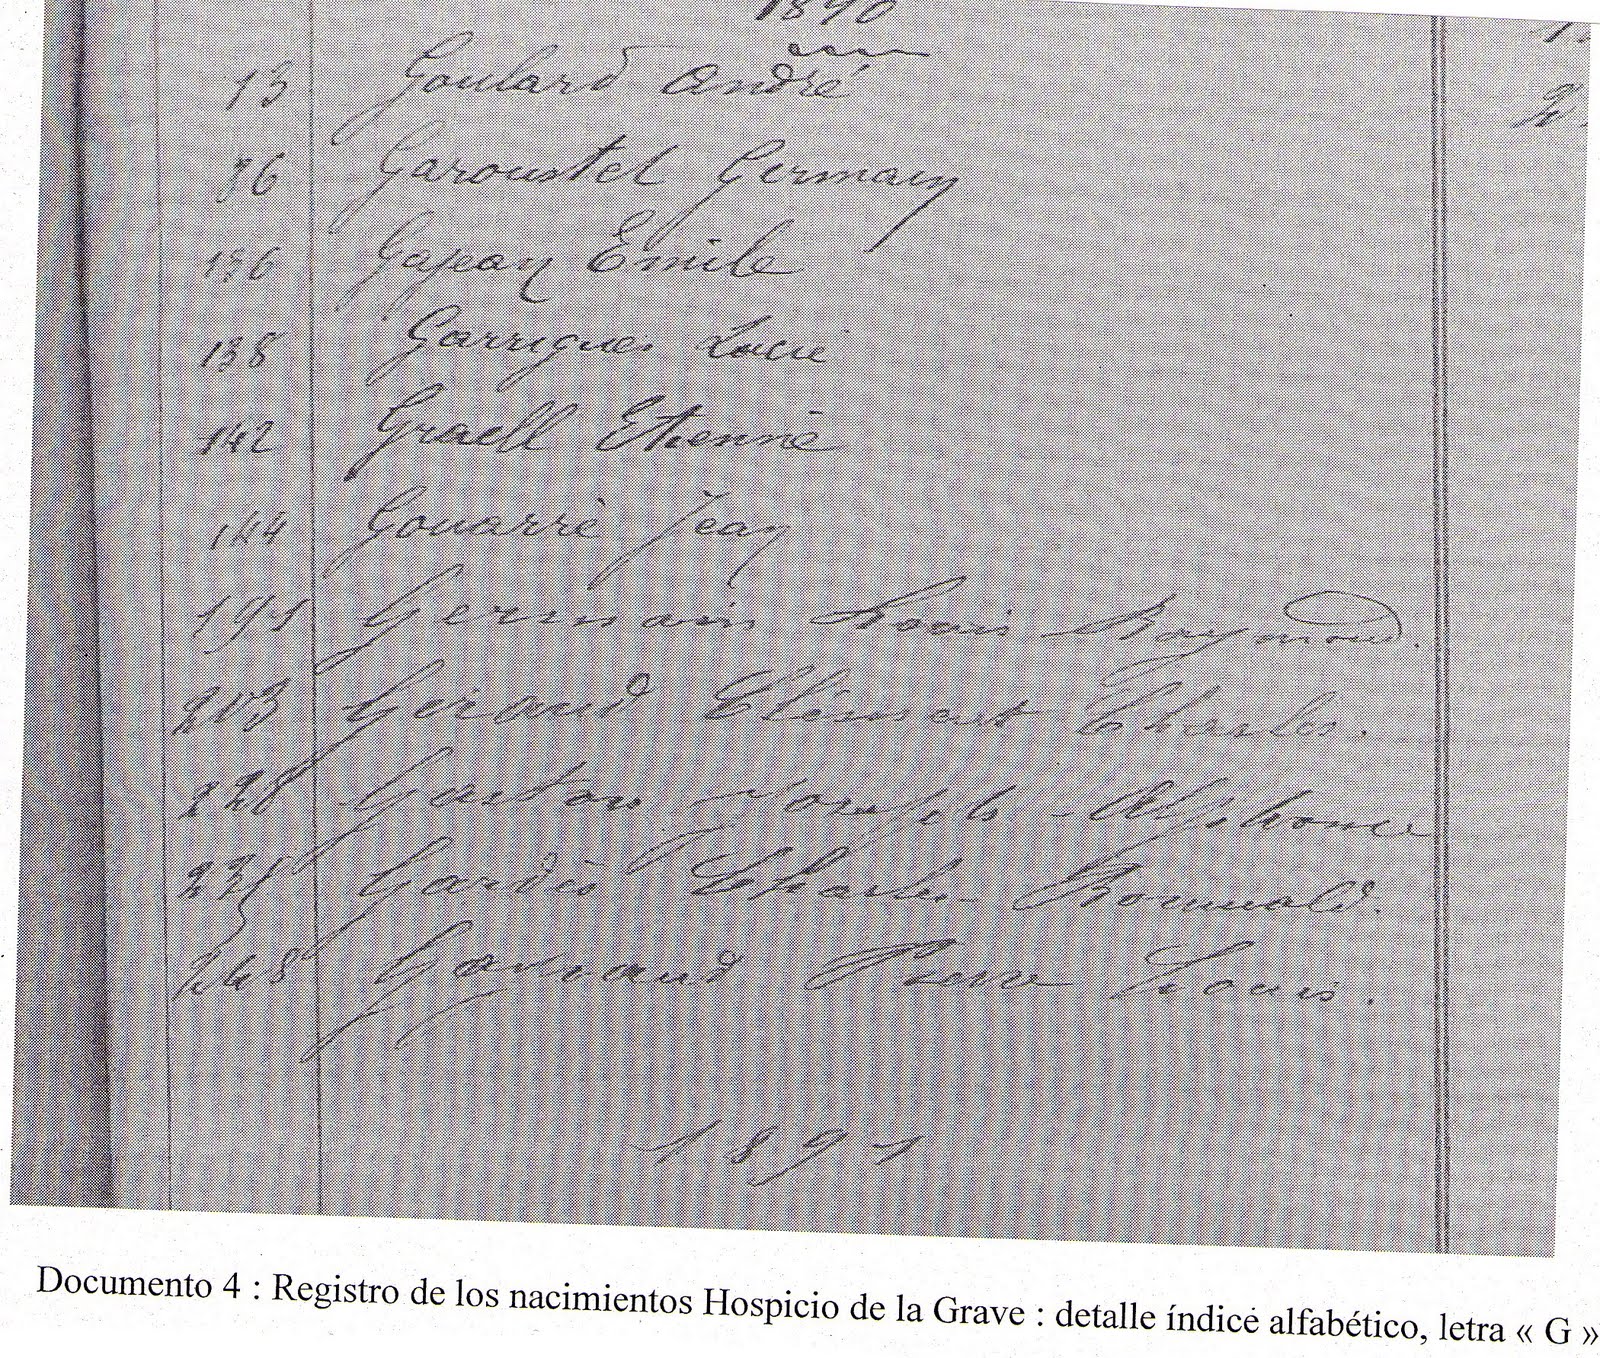 1890
13 Goulard André
86 Garoustet Germain
136 Gajean Emile
138 Garrigues Lucie
142 Graell Etienne
144 Gouarré Jean
191 Germain Louis Raymond.
203 Geraud Clément Charles.
228 Gaston Joseph Alphonse
235 Gardès Charles Romuald.
248 Pierre Louis.
1891
Documento 4 : Registro de los nacimientos Hospicio de la Grave : detalle índice alfabético, letra « G »